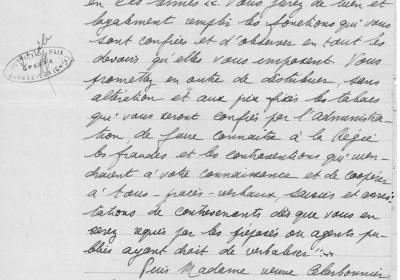 en ces termes : "Vous jurez de bien et
loyalement remplir les fonctions qui vous
sont confiées et d'observer en tout les
devoirs qu'elles vous imposent. Vous
promettez en outre de distribuer, sans
altération et aux prix fixés les tabacs
qui vous seront confiés par l'administra-
tion de faire connaître à la Régie
les fraudes et les contraventions qui vien-
draient à votre connaissance et de coopérer
à tous procès-verbaux, saisies et arres-
tations de contrevenants dès que vous en
serez requis par les préposés ou agents pu-
blics ayant droit de verbaliser"
Puis Madame veuve